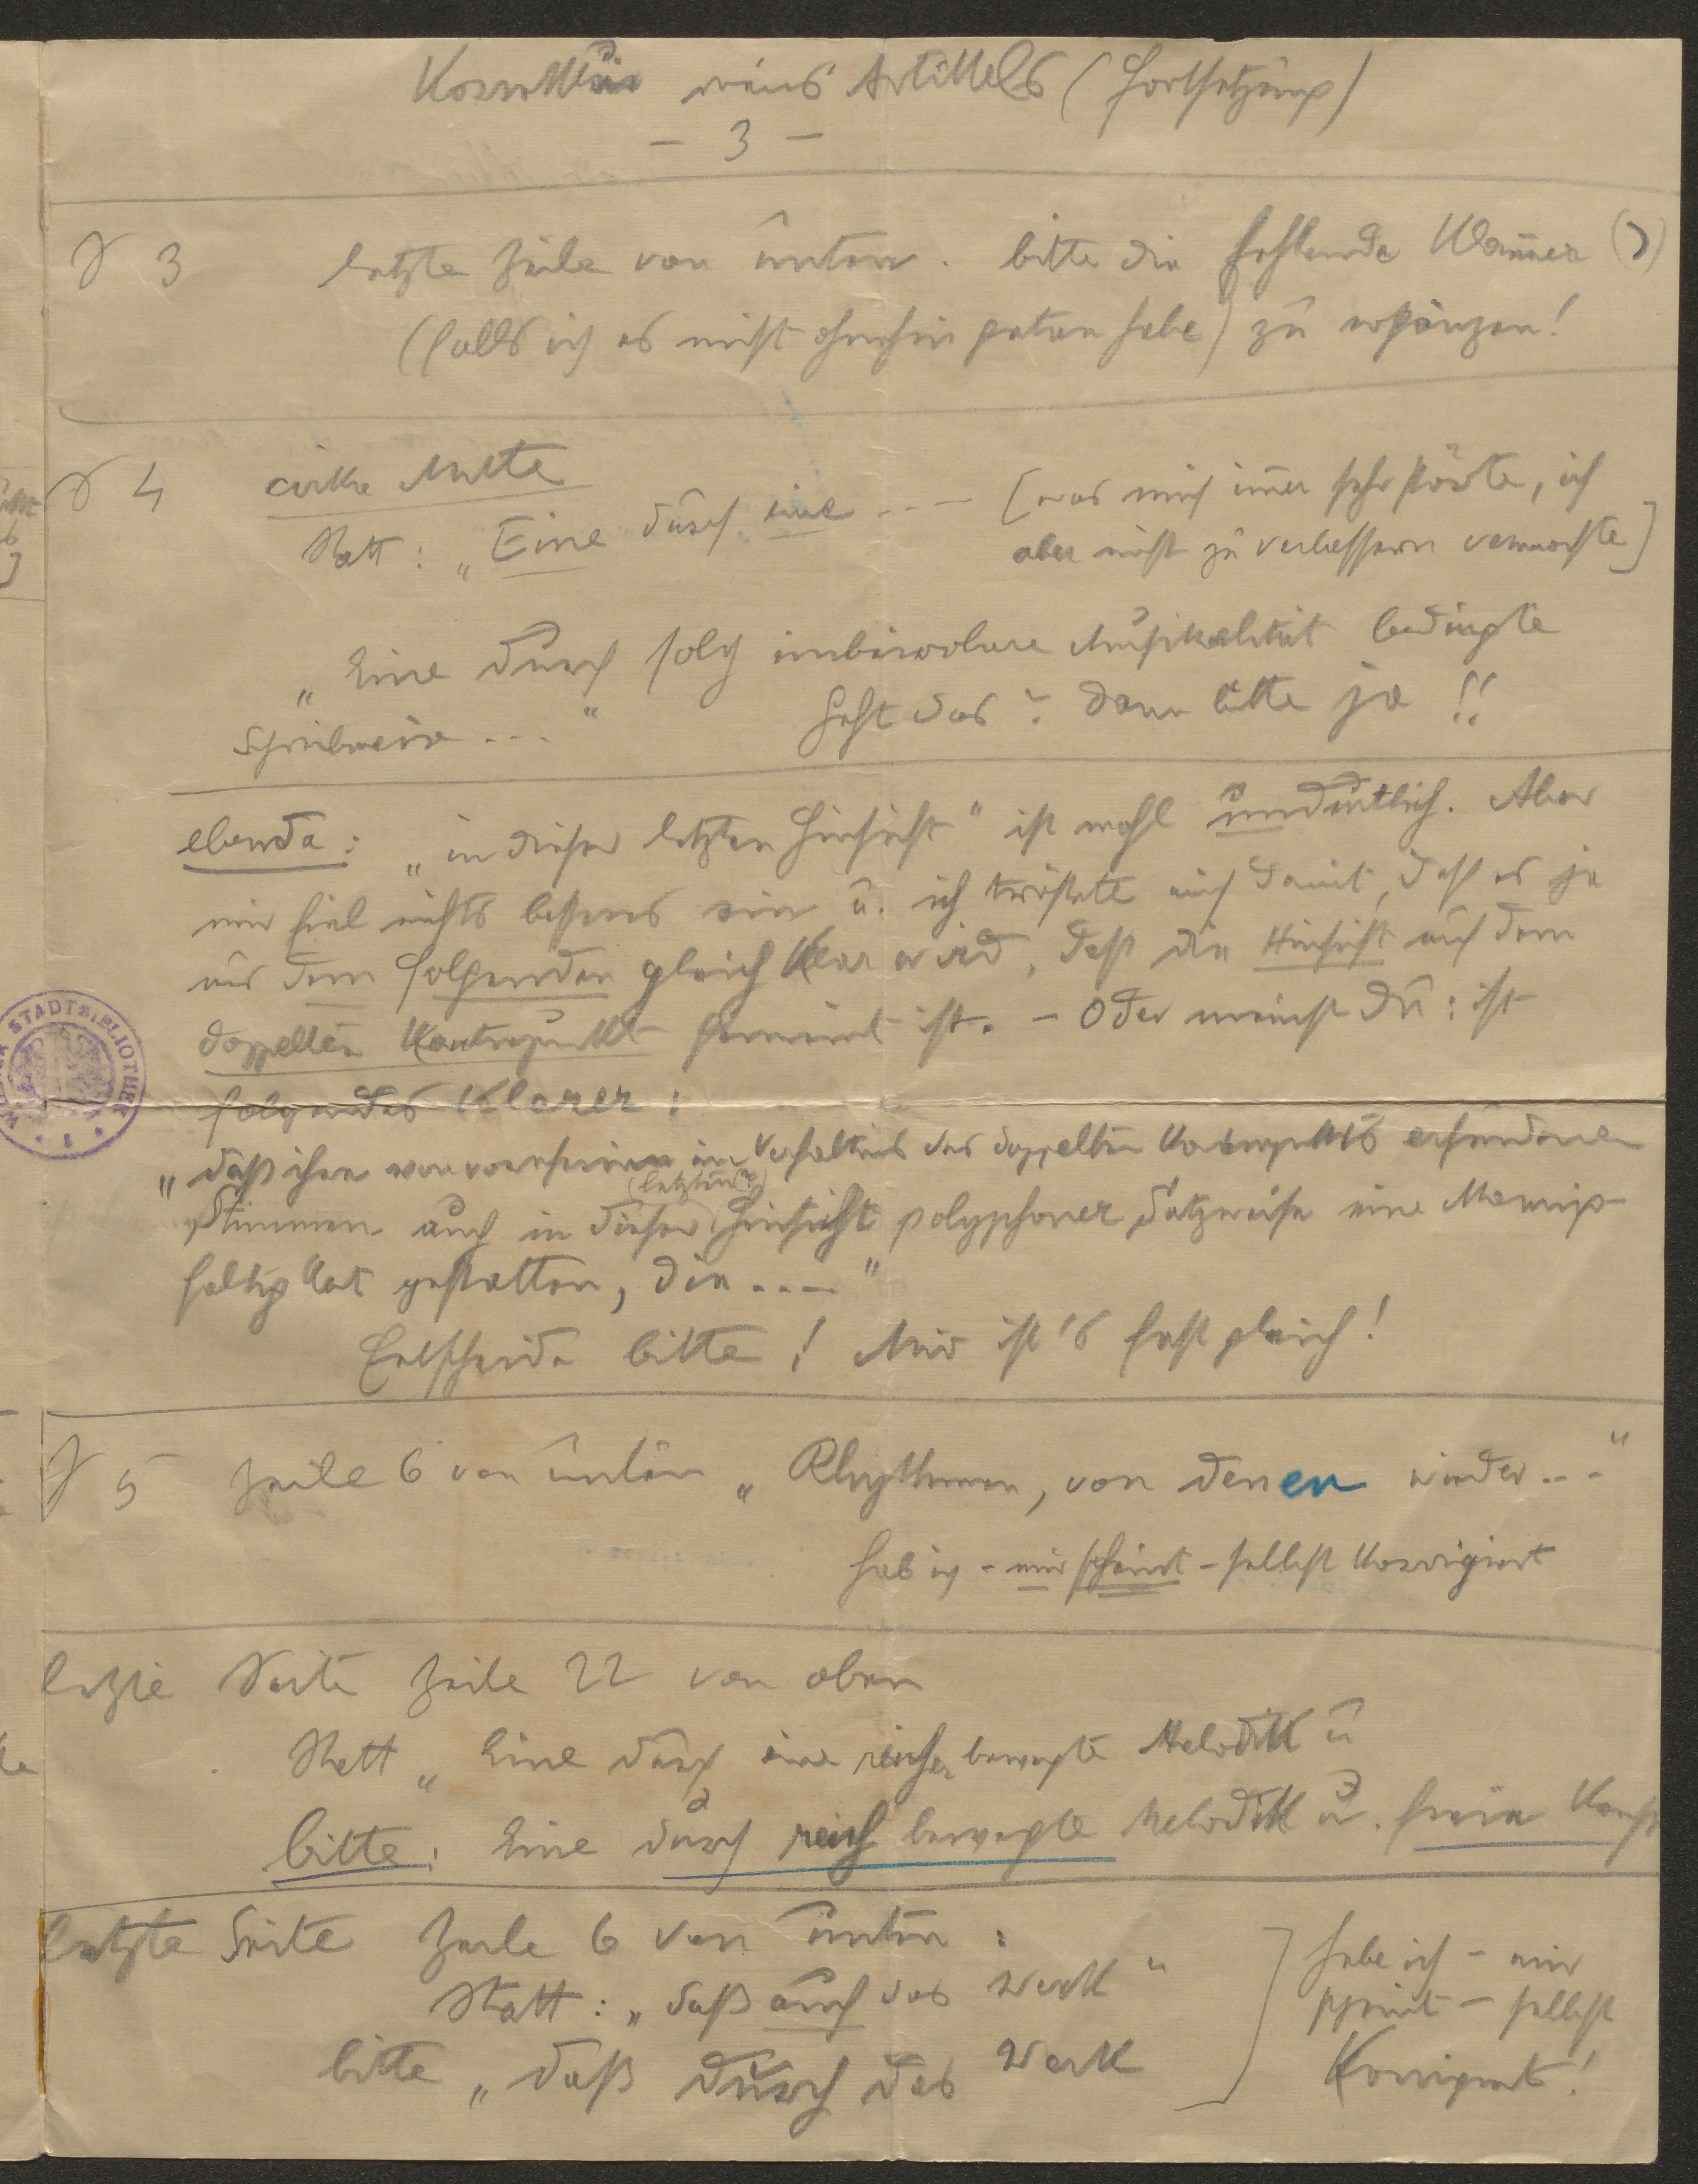 Korrektur meines Artikels (Fortsetzung)
– 3 –
S 3 letzte Zeile von unten. bitte die fehlende Klammer )
(falls ich es nicht ohnehin getan habe) zu ergänzen!
S 4 cirka Mitte
Statt: „Eine durch eine ... – [was mich immer sehr störte, ich
aber nicht zu verbessern vermochte]
„Eine durch solch unbewohnte Musikalität bedingte
Schreibweise ..." Geht das? Dann bitte ja!!
ebenda: „in dieser letzten Hinsicht" ist wohl undeutlich. Aber
mir fiel nichts besseres ein u. ich tröstete mich damit, daß es ja
aus dem folgenden gleich klar wird, daß die Hinsicht auf den
doppelten Kontrapunkt gemeint ist. – Oder meinst Du: ist
folgendes klarer:
„daß ihre von vornherein im Verhältnis des doppelten Kontrapunkts erfundenen
(letzten?)
Stimmen auch in dieser Hinsicht polyphoner Satzweise eine Mannig-
faltigkeit gestatten, die ...."
Entscheide bitte! Mir ist's fast gleich!
S 5 Zeile 6 von unten „Rhythmen, von denen wieder ..."
hab ich – mir scheint – selbst korrigiert
letzte Seite Zeile 22 von oben
Statt „Eine durch eine reicher bewegte Melodik u
bitte: Eine durch reich bewegte Melodik u. freie
letzte Seite Zeile 6 von unten:
Statt: „daß auch das Werk"
bitte „daß durch das Werk
habe ich – mir
scheint – selbst
korrigiert!
WIENER STADTBIBLIOTHEK